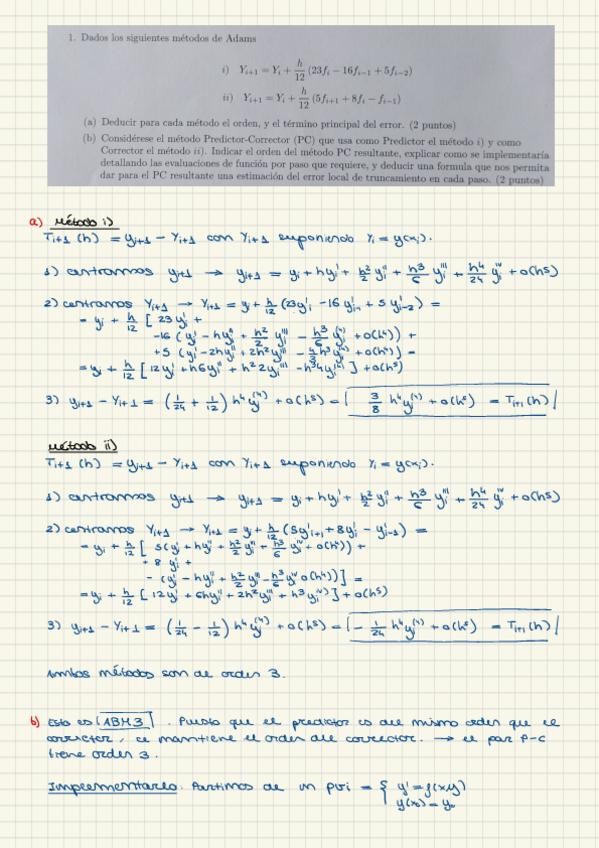 1. Dados los siguientes métodos de Adams
i) Y_{i+1} = Y_i + h/12 (23f_i − 16f_{i−1} + 5f_{i−2})
ii) Y_{i+1} = Y_i + h/12 (5f_{i+1} + 8f_i − f_{i−1})
(a) Deducir para cada método el orden, y el término principal del error. (2 puntos)
(b) Considérese el método Predictor-Corrector (PC) que usa como Predictor el método i) y como
Corrector el método ii). Indicar el orden del método PC resultante, explicar como se implementaría
detallando las evaluaciones de función por paso que requiere, y deducir una formula que nos permita
dar para el PC resultante una estimación del error local de truncamiento en cada paso. (2 puntos)
a) Método i)
T_{i+1}(h) = y_{i+1} − Y_{i+1} con Y_{i+1} suponiendo Y_i = y(x_i).
1) centramos y_{i+1} → y_{i+1} = y_i + hy_i' + h²/2 y_i'' + h³/6 y_i''' + h⁴/24 y_i^{IV} + o(h⁵)
2) centramos Y_{i+1} → Y_{i+1} = y_i + h/12 (23y_i' − 16 y_{i−1}' + 5 y_{i−2}') =
= y_i + h/12 [ 23 y_i' +
−16 ( y_i' − hy_i'' + h²/2 y_i''' − h³/6 y_i^{(4)} + o(h⁴)) +
+5 ( y_i' − 2hy_i'' + 2h² y_i''' − 4/3 h³ y_i^{(4)} + o(h⁴) ] =
= y_i + h/12 [ 12 y_i' + h6y_i'' + h² 2y_i''' − h³4y_i^{(4)} ] + o(h⁵)
3) y_{i+1} − Y_{i+1} = (1/24 + 1/12) h⁴ y_i^{(4)} + o(h⁵) = 3/8 h⁴ y_i^{(4)} + o(h⁵) = T_{i+1}(h)
Método ii)
T_{i+1}(h) = y_{i+1} − Y_{i+1} con Y_{i+1} suponiendo Y_i = y(x_i).
1) centramos y_{i+1} → y_{i+1} = y_i + hy_i' + h²/2 y_i'' + h³/6 y_i''' + h⁴/24 y_i^{IV} + o(h⁵)
2) centramos Y_{i+1} → Y_{i+1} = y_i + h/12 (5y_{i+1}' + 8y_i' − y_{i−1}') =
= y_i + h/12 [ 5(y_i' + hy_i'' + h²/2 y_i''' + h³/6 y_i^{IV} + o(h⁴)) +
+ 8 y_i' +
− (y_i' − hy_i'' + h²/2 y_i''' − h³/6 y_i^{IV} o(h⁴)) ] =
= y_i + h/12 [ 12y_i' + 6hy_i'' + 2h² y_i''' + h³ y_i^{IV)} ] + o(h⁵)
3) y_{i+1} − Y_{i+1} = (1/24 − 1/12) h⁴ y_i^{(4)} + o(h⁵) = − 1/24 h⁴ y_i^{(4)} + o(h⁵) = T_{i+1}(h)
Ambos métodos son de orden 3.
b) Esto es ABM3. Puesto que el predictor es del mismo orden que el
corrector, se mantiene el orden del corrector. → el par P-C
tiene orden 3.
Implementarlo. Partimos de un pvi = { y' = f(x,y)
y(x_0) = y_0